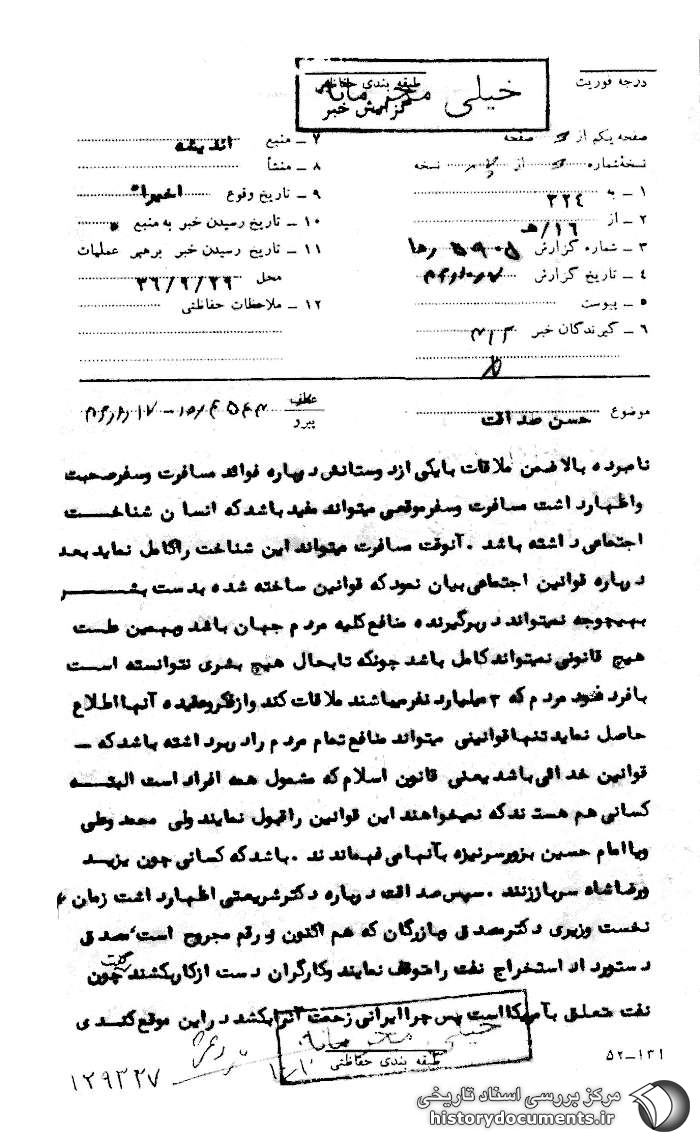 خیلی محرمانه
طبقه بندی حفاظتی
گزارش خبر
درجه فوریت
صفحه یکم از صفحه
نسخه شماره از نسخه
۱ ــ به ۳۲۴
۲ ــ از ۱۶/هـ
۳ ــ شماره گزارش
۴ ــ تاریخ گزارش
۵ ــ پیوست
۶ ــ گیرندگان خبر
۷ ــ منبع اندیشه
۸ ــ منشأ
۹ ــ تاریخ وقوع اخیرا"
۱۰ ــ تاریخ رسیدن خبر به منبع
۱۱ ــ تاریخ رسیدن خبر برهبر عملیات
محل ۳۶/۹/۲۹
۱۲ ــ ملاحظات حفاظتی
موضوع حسن صداقت
عطف
پیرو
نامبرده بالا ضمن ملاقات بایکی ازدوستانش درباره فوائد مسافرت وسفرصحبت
واظهارداشت مسافرت وسفرموقعی میتواند مفید باشدکه انسان شناخست
اجتماعی داشته باشد . آنوقت مسافرت میتواند این شناخت راکامل نماید بعد
درباره قوانین اجتماعی بیان نمودکه قوانین ساخته شده بدست بشـــر
بهیچوجه نمیتواند دربرگیرنده منافع کلیه مردم جهان باشد وبهمین علت
هیچ قانونی نمیتواند کامل باشد چونکه تابحال هیچ بشری نتوانسته است
بافرد فرد مردم که ۳ میلیارد نفرمیباشند ملاقات کند وازفکروعقیده آنهااطلاع
حاصل نماید تنهاقوانینی میتواند منافع تمام مردم رادربرداشته باشدکه ــ
قوانین خدائی باشد یعنی قانون اسلام که مشمول همه افراد است البتـــه
کسانی هم هستندکه نمیخواهند این قوانین راقبول نمایند ولی محمد وعلی
ویا امام حسین بزورسرنیزه بآنهامی فهماندند . باشدکه کسانی چون یزیــد
ورضاشاه سرباززنند . سپس صداقت درباره دکترشریعتی اظهارداشت زمان
نخست وزیری دکترمصدق وبازرگان که هم اکنون ورقم مجروح است، مصدق
دستورداد استخراج نفت رامتوقف نمایند وکارگران دست ازکاربکشند گفت چون
نفت متعلق بآمریکااست پس چرا ایرانی زحمت آنرابکشد دراین موقع
خیلی محرمانه
طبقه بندی حفاظتی
۵۲ــ۱۳۱
۱۲۹۳۲۷
مرکز بررسی اسناد تاریخی
historydocuments.ir